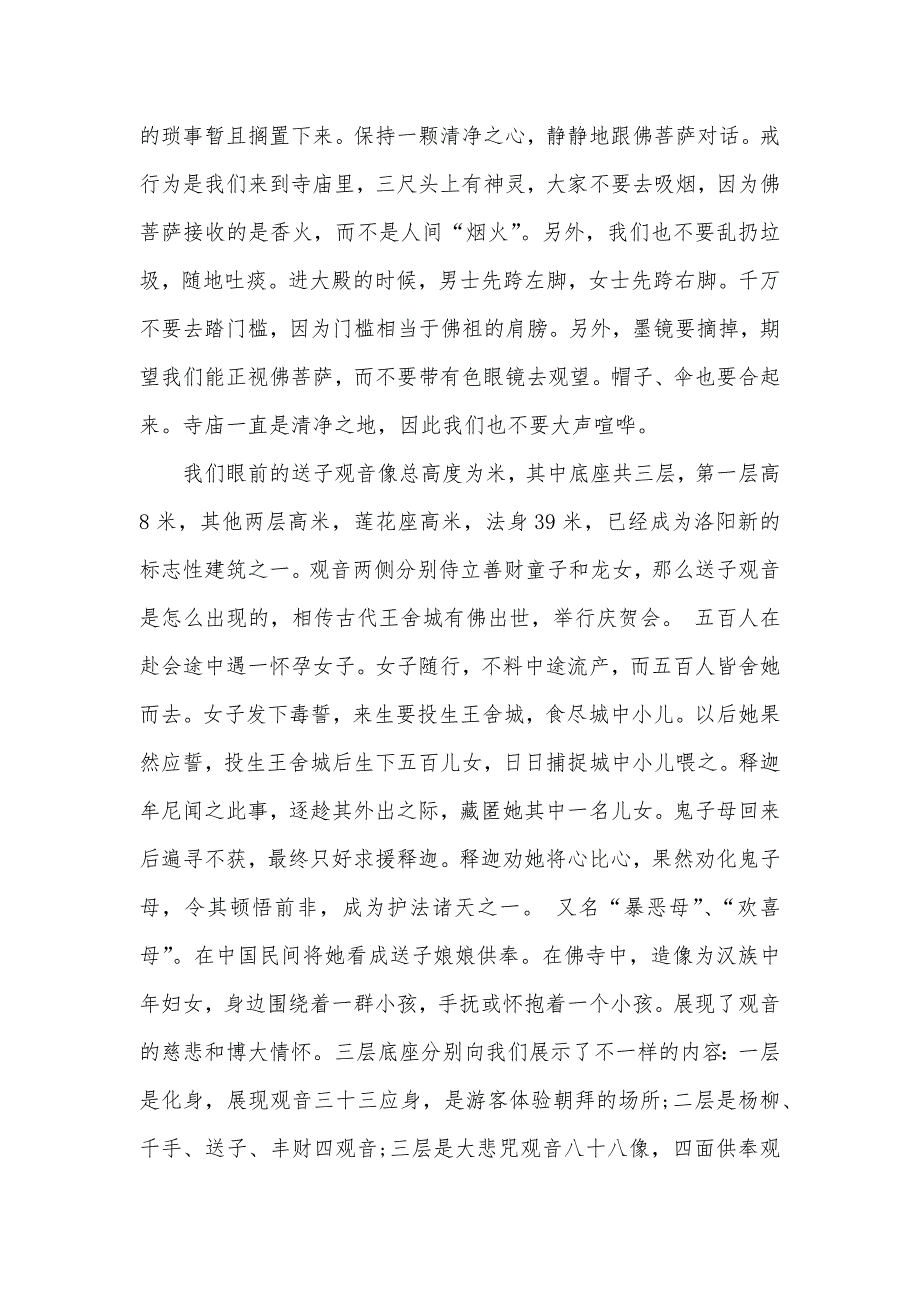 的琐事暂且搁置下来。保持一颗清净之心，静静地跟佛菩萨对话。戒
行为是我们来到寺庙里，三尺头上有神灵，大家不要去吸烟，因为佛
菩萨接收的是香火，而不是人间“烟火”。另外，我们也不要乱扔垃
圾，随地吐痰。进大殿的时候，男士先跨左脚，女士先跨右脚。千万
不要去踏门槛，因为门槛相当于佛祖的肩膀。另外，墨镜要摘掉，期
望我们能正视佛菩萨，而不要带有色眼镜去观望。帽子、伞也要合起
来。寺庙一直是清净之地，因此我们也不要大声喧哗。
我们眼前的送子观音像总高度为米，其中底座共三层，第一层高
8 米，其他两层高米，莲花座高米，法身 39 米，已经成为洛阳新的
标志性建筑之一。观音两侧分别侍立善财童子和龙女，那么送子观音
是怎么出现的，相传古代王舍城有佛出世，举行庆贺会。 五百人在
赴会途中遇一怀孕女子。女子随行，不料中途流产，而五百人皆舍她
而去。女子发下毒誓，来生要投生王舍城，食尽城中小儿。以后她果
然应誓，投生王舍城后生下五百儿女，日日捕捉城中小儿喂之。释迦
牟尼闻之此事，逐趁其外出之际，藏匿她其中一名儿女。鬼子母回来
后遍寻不获，最终只好求援释迦。释迦劝她将心比心，果然劝化鬼子
母，令其顿悟前非，成为护法诸天之一。 又名“暴恶母”、“欢喜
母”。在中国民间将她看成送子娘娘供奉。在佛寺中，造像为汉族中
年妇女，身边围绕着一群小孩，手抚或怀抱着一个小孩。展现了观音
的慈悲和博大情怀。三层底座分别向我们展示了不一样的内容：一层
是化身，展现观音三十三应身，是游客体验朝拜的场所;二层是杨柳、
千手、送子、丰财四观音;三层是大悲咒观音八十八像，四面供奉观